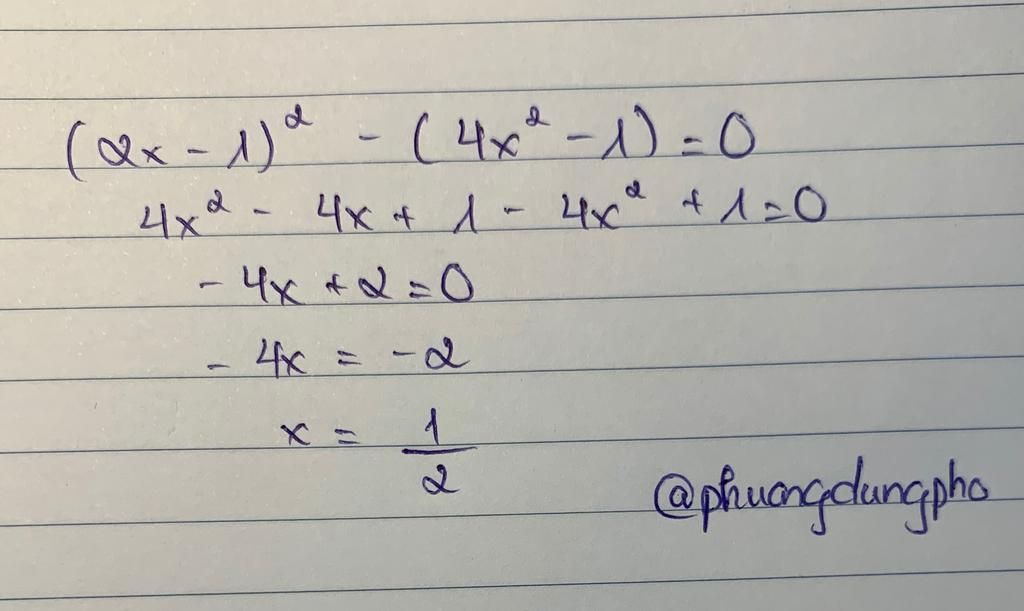 (2x - 1)² - (4x² - 1) = 0
4x² - 4x + 1 - 4x² + 1 = 0
- 4x + 2 = 0
- 4x = -2
x = 1/2
@phuongdungpho